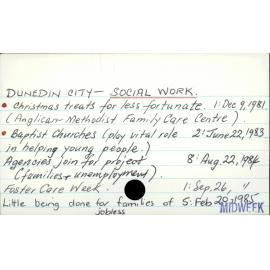 DUNEDIN CITY - SOCIAL WORK.
• Christmas treats for less fortunate. 1: Dec 9, 1981
(Anglican-Methodist Family Care Centre).
• Baptist Churches (play vital role 2: June 22, 1983
in helping young people.)
Agencies join for project 8: Aug. 22, 1984
(families + unemployment).
Foster Care Week. 1: Sep, 26, "
Little being done for families of 5: Feb 20, 1985
jobless MIDWEEK